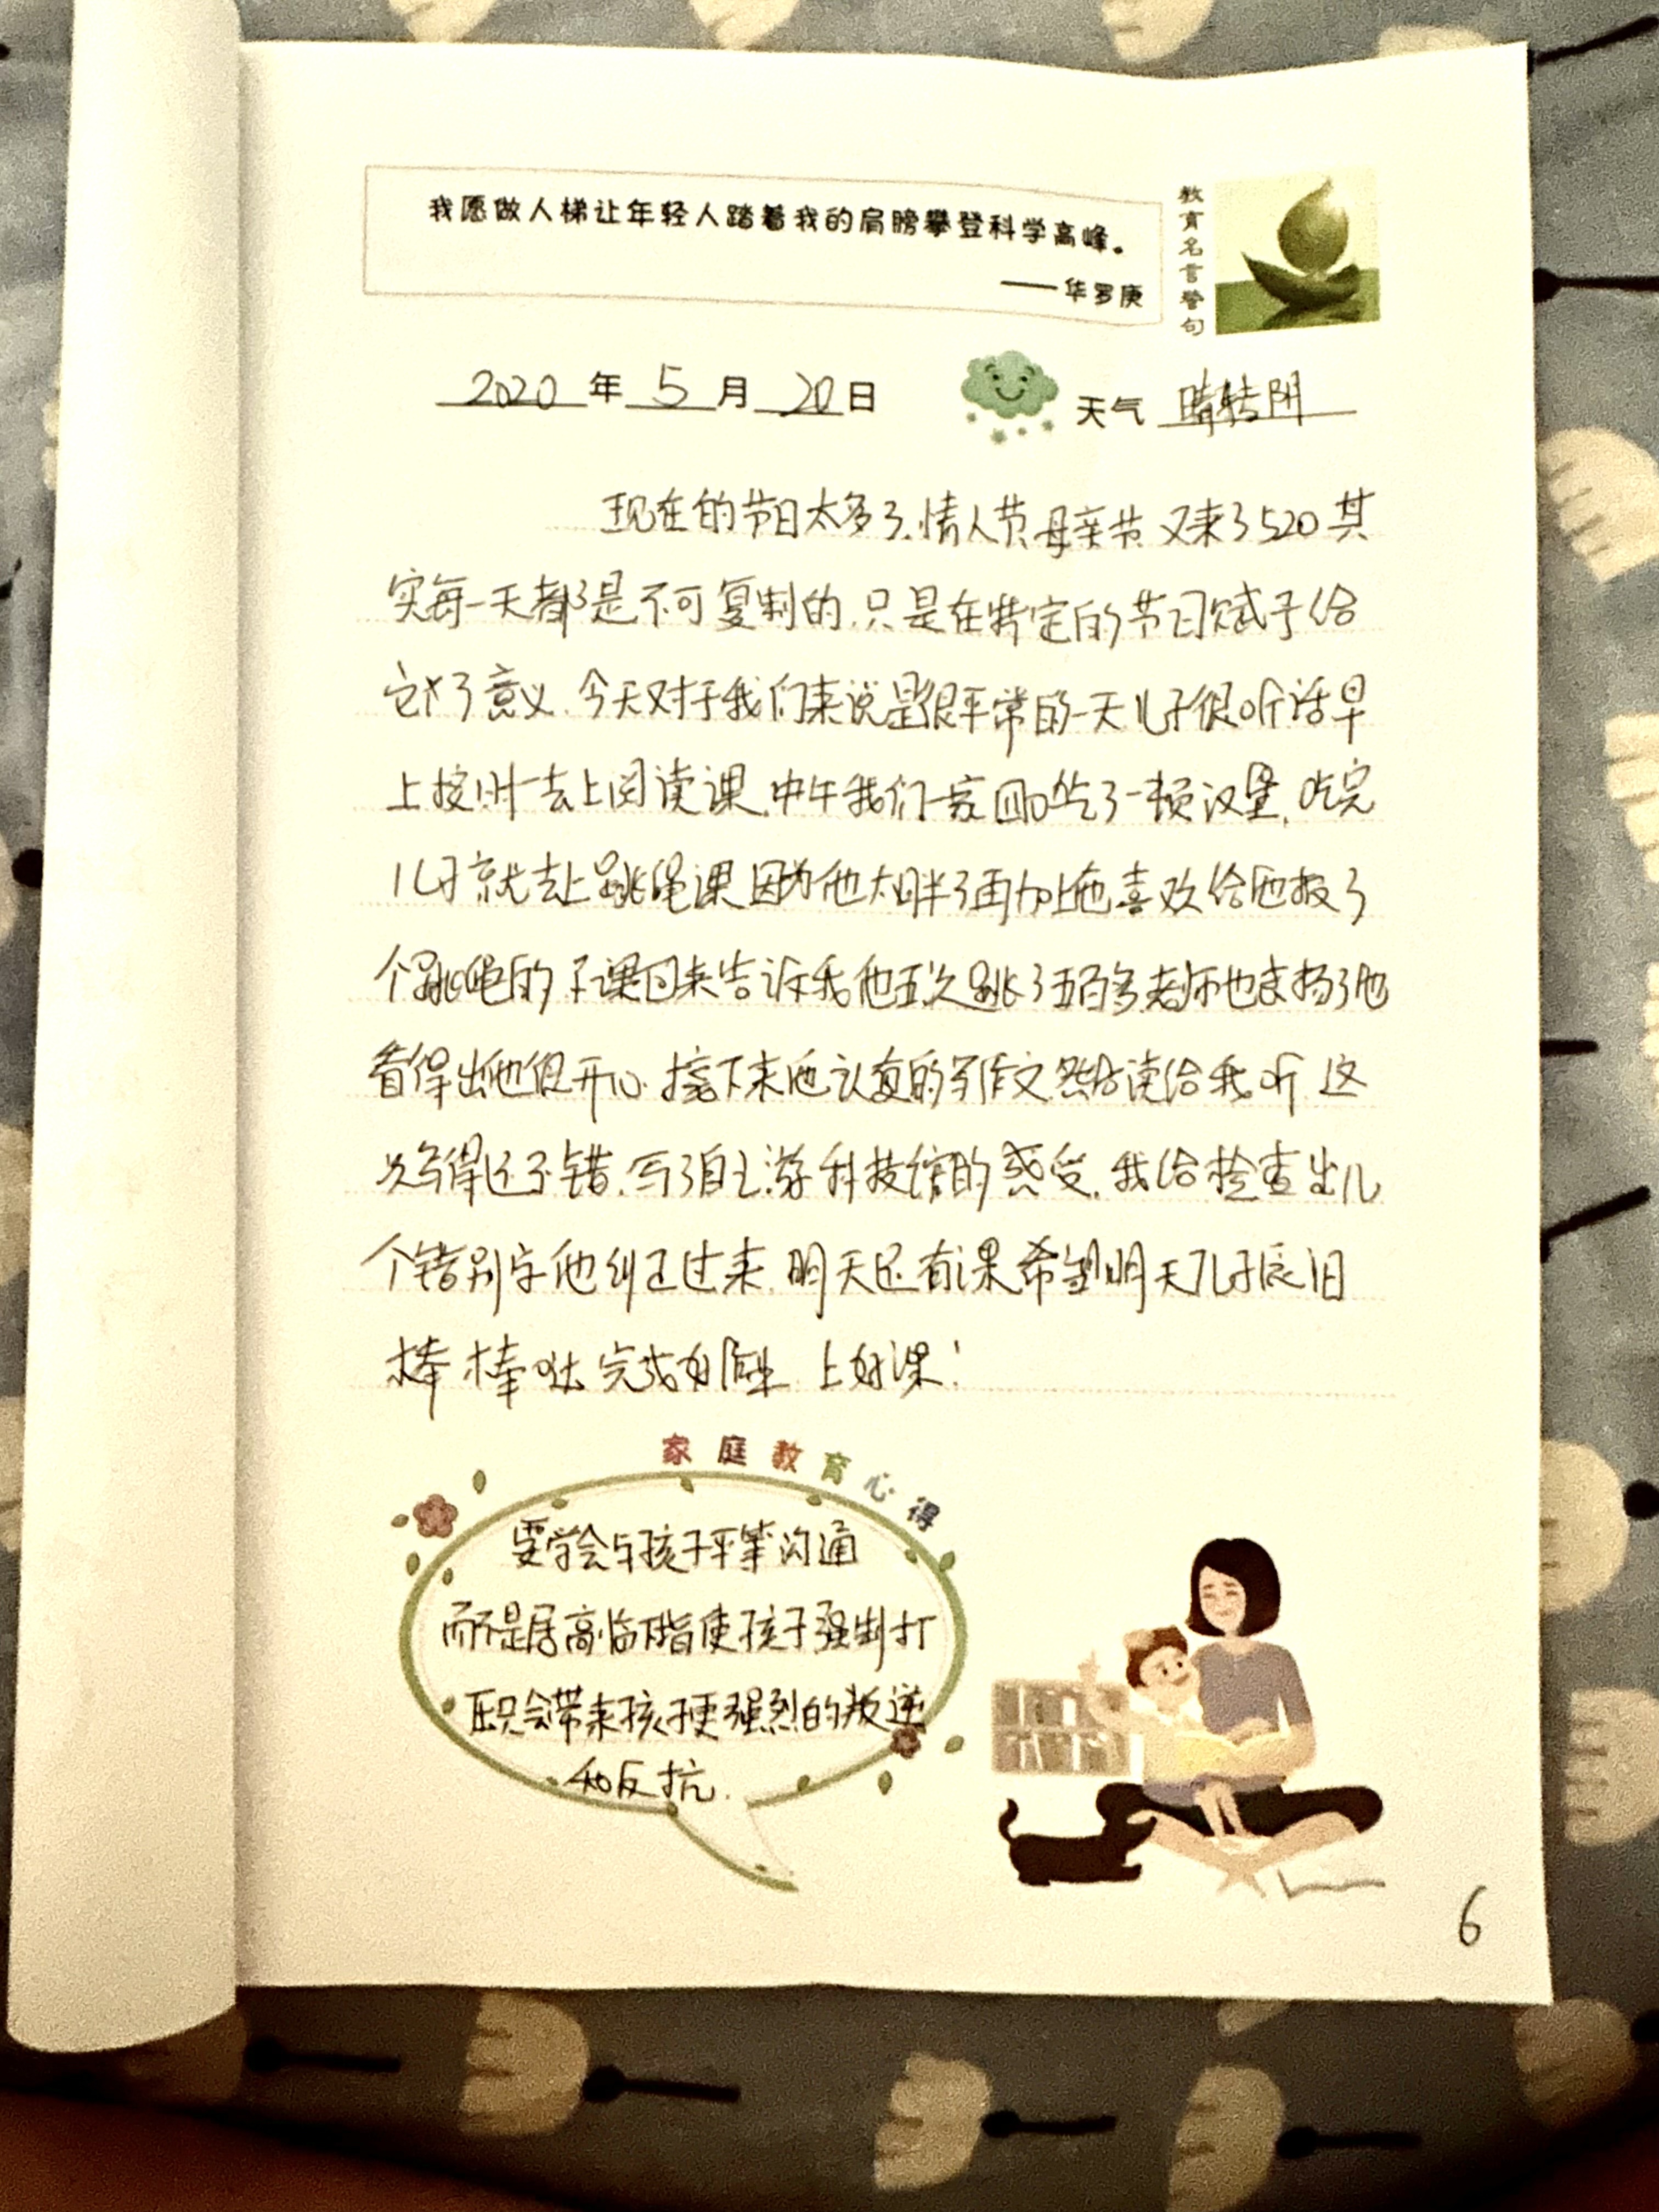 我愿做人梯让年轻人踏着我的肩膀攀登科学高峰。
——华罗庚
教育名言警句
2020年5月20日 天气 晴转阴
现在的节日太多了.情人节.母亲节.又来了520其
实每一天都是不可复制的.只是在特定的节日赋予给
它了意义.今天对于我们来说是很平常的一天儿子很听话早
上按时去上阅读课.中午我们一家四口吃了一顿汉堡.吃完
儿子就去上跳绳课因为他太胖了再加上他喜欢给他报了
个跳绳的.下课回来告诉我他五次跳了五百多.老师也表扬了他
看得出他很开心.接下来他认真的写作文.然后读给我听.这
次写得还不错.写了自己游科技馆的感受.我给检查出几
个错别字他纠正过来.明天还有课希望明天儿子依旧
棒棒哒 完成好作业 上好课!
家庭教育心得
要学会与孩子平等沟通
而不是居高临下指使孩子强制打
压只会带来孩子更强烈的叛逆
和反抗.
6